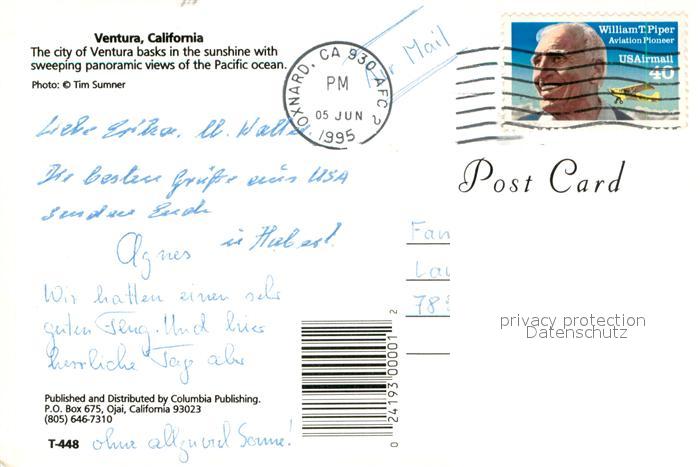 Ventura, California
The city of Ventura basks in the sunshine with
sweeping panoramic views of the Pacific ocean.
Photo: © Tim Sumner
Air Mail
OXNARD, CA 930 AFC 2
PM
05 JUN
1995
William T. Piper
Aviation Pioneer
USAirmail
40
Post Card
Liebe Erika. U. Walter.
Die besten Grüße aus USA
senden Euch
Agnes u Hubert.
Wir hatten einen sehr
guten Flug. Und hier
herrliche Tage aber
ohne allzuviel Sonne!
Fam
Lau
78
privacy protection
Datenschutz
Published and Distributed by Columbia Publishing.
P.O. Box 675, Ojai, California 93023
(805) 646-7310
T-448
0 24193 00001 2